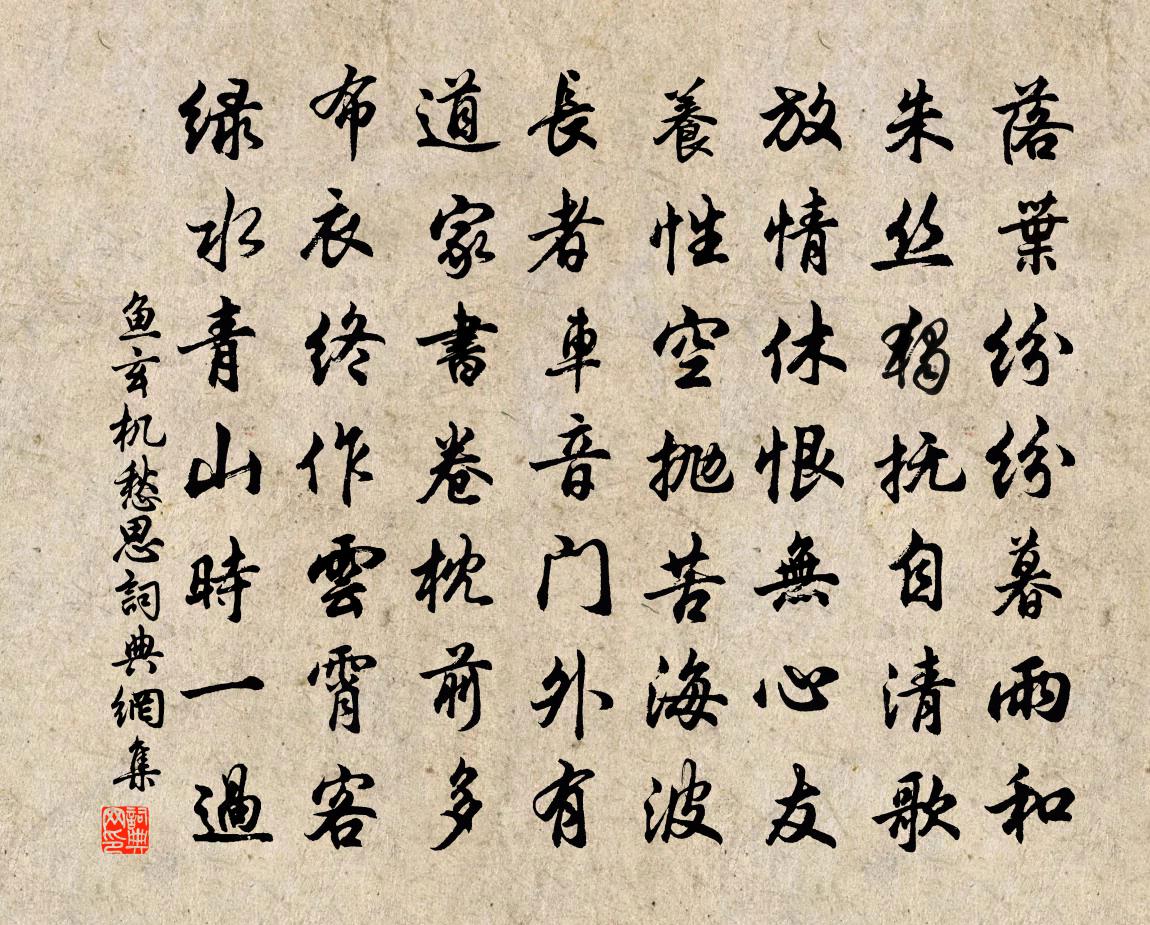 落葉紛紛暮雨和
朱丝獨抚自清歌
放情休恨無心友
養性空抛苦海波
長者車音门外有
道家書卷枕前多
布衣终作雲霄客
绿水青山時一過
鱼玄机愁思詞典網集
詞典网印